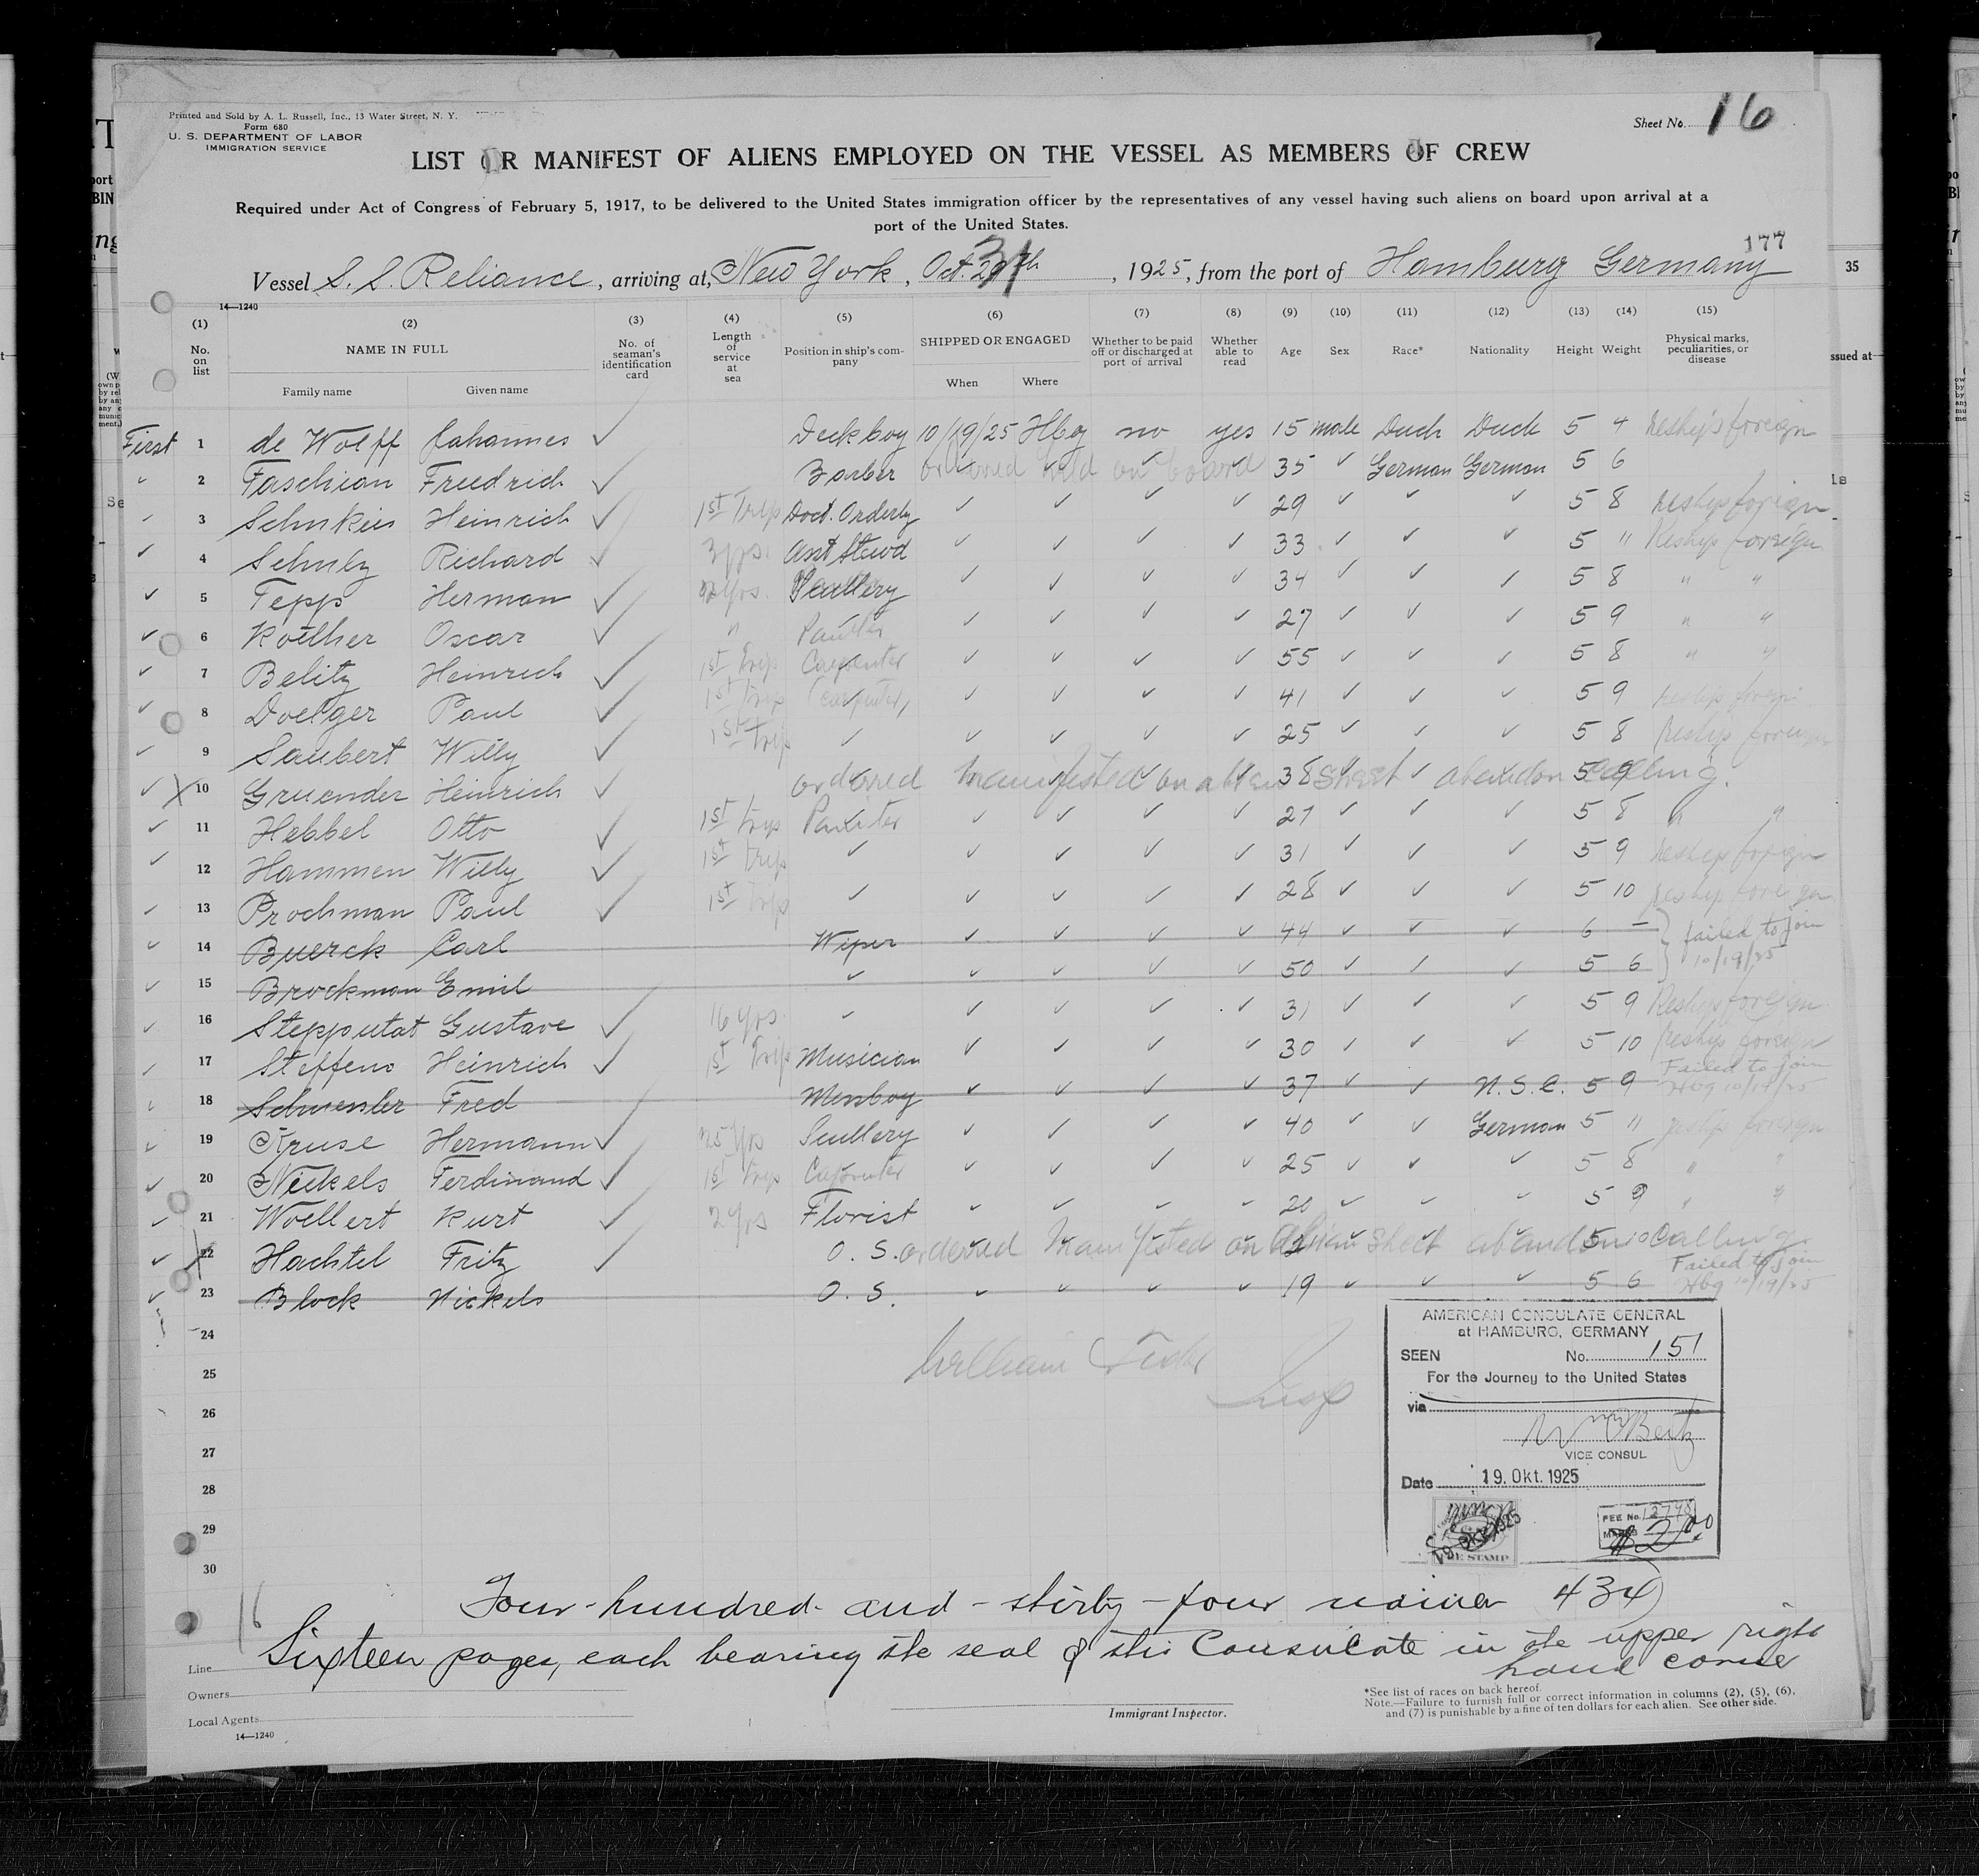 Printed and Sold by A. L. Russell, Inc., 13 Water Street, N. Y.
Form 680
U. S. DEPARTMENT OF LABOR
IMMIGRATION SERVICE
Sheet No. 16
LIST OR MANIFEST OF ALIENS EMPLOYED ON THE VESSEL AS MEMBERS OF CREW
Required under Act of Congress of February 5, 1917, to be delivered to the United States immigration officer by the representatives of any vessel having such aliens on board upon arrival at a
port of the United States.
177
Vessel S. S. Reliance, arriving at, New York, Oct. 31, 1925, from the port of Hamburg Germany
35
14—1240
(1) (2) (3) (4) (5) (6) (7) (8) (9) (10) (11) (12) (13) (14) (15)
No. on list
NAME IN FULL
Family name Given name
No. of seaman's identification card
Length of service at sea
Position in ship's company
SHIPPED OR ENGAGED
When Where
Whether to be paid off or discharged at port of arrival
Whether able to read
Age Sex Race* Nationality Height Weight
Physical marks, peculiarities, or disease
ssued at
First 1 de Wolff Johannes ✓ Deckboy 10/19/25 Hbg no yes 15 male Duch Duch 5 4 Reships foreign
✓ 2 Faschian Friedrich ✓ Barber ordered held on board 35 ✓ German German 5 6
✓ 3 Heinrich ✓ 1st Trip Doct. Orderly ✓ ✓ ✓ ✓ 29 ✓ ✓ ✓ 5 8 Reships foreign
✓ 4 Richard ✓ 3 yrs. Asst Stewd ✓ ✓ ✓ ✓ 33 ✓ ✓ ✓ 5 11 Reships foreign
✓ 5 Tepp Herman ✓ yrs. Scullery ✓ ✓ ✓ ✓ 34 ✓ ✓ ✓ 5 8 " "
✓ 6 Koelher Oscar ✓ " Painter ✓ ✓ ✓ ✓ 27 ✓ ✓ ✓ 5 9 " "
✓ 7 Belitz Heinrich ✓ 1st Trip Carpenter ✓ ✓ ✓ ✓ 55 ✓ ✓ ✓ 5 8 " "
✓ 8 Doelger Paul ✓ 1st trip Carpenter ✓ ✓ ✓ ✓ 41 ✓ ✓ ✓ 5 9 Reships foreign
✓ 9 Saubert Willy ✓ 1st trip ✓ ✓ ✓ ✓ ✓ 25 ✓ ✓ ✓ 5 8 Reships foreign
✓ X 10 Gruender Heinrich ✓ ordered manifested on alien sheet abandon calling. 38 5 9
✓ 11 Hebbel Otto ✓ 1st trip Painter ✓ ✓ ✓ ✓ 27 ✓ ✓ ✓ 5 8 " "
✓ 12 Hammen Willy ✓ 1st trip ✓ ✓ ✓ ✓ ✓ 31 ✓ ✓ ✓ 5 9 Reships foreign
✓ 13 Prochman Paul ✓ 1st trip ✓ ✓ ✓ ✓ ✓ 28 ✓ ✓ ✓ 5 10 Reships foreign
✓ 14 Buerck Carl Wiper ✓ ✓ ✓ ✓ 44 ✓ ✓ ✓ 6 – failed to join
✓ 15 Brockman Emil ✓ ✓ ✓ ✓ ✓ 50 ✓ ✓ ✓ 5 6 10/19/25
✓ 16 Stepputat Gustave ✓ 16 yrs. ✓ ✓ ✓ ✓ ✓ 31 ✓ ✓ ✓ 5 9 Reships foreign
✓ 17 Steffens Heinrich ✓ 1st Trip Musician ✓ ✓ ✓ ✓ 30 ✓ ✓ ✓ 5 10 Reships foreign
✓ 18 Schuessler Fred Messboy ✓ ✓ ✓ ✓ 37 ✓ ✓ 5 9 Failed to join Hbg 10/19/25
✓ 19 Kruse Hermann ✓ 25 yrs Scullery ✓ ✓ ✓ ✓ 40 ✓ ✓ German 5 11 Reships foreign
✓ 20 Nickels Ferdinand ✓ 1st trip Carpenter ✓ ✓ ✓ ✓ 25 ✓ ✓ ✓ 5 8 " "
✓ 21 Woellert Kurt ✓ 2 yrs Florist ✓ ✓ ✓ ✓ 20 ✓ ✓ ✓ 5 9 " "
✓ X 22 Hachtel Fritz ✓ O. S. ordered manifested on alien sheet abandon calling 5 10
✓ 23 Block Nickels O. S. ✓ ✓ ✓ ✓ 19 ✓ ✓ ✓ 5 6 Failed to join Hbg 10/19/25
24
25
26
27
28
29
30
William
Insp
AMERICAN CONSULATE GENERAL
at HAMBURG, GERMANY
SEEN No. 151
For the Journey to the United States
via
VICE CONSUL
Date 19. Okt. 1925
FEE STAMP
FEE No. 12798
$2.00
Four-hundred-and-thirty-four names 434)
16
Sixteen pages, each bearing the seal of this Consulate in the upper right
hand corner
Line
Owners
Local Agents
Immigrant Inspector.
*See list of races on back hereof.
Note.—Failure to furnish full or correct information in columns (2), (5), (6),
and (7) is punishable by a fine of ten dollars for each alien. See other side.
14—1240